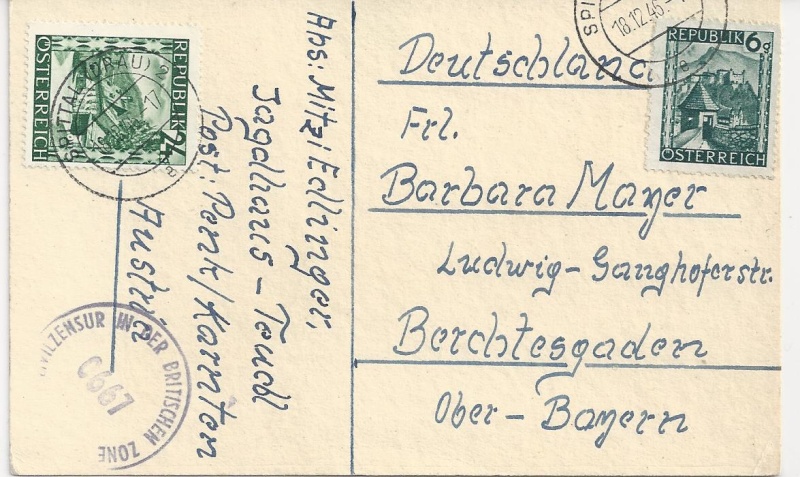 REPUBLIK 24
ÖSTERREICH
SPITTAL (DRAU) 2
a
Abs: Mitzi Edlinger,
Jagdhaus - Teuchl
Post: Penk / Kärnten
Austria
ZIVILZENSUR IN DER BRITISCHEN ZONE
C667
18.12.46
a
REPUBLIK 6g
ÖSTERREICH
Deutschland
Frl.
Barbara Mayer
Ludwig-Ganghoferstr.
Berchtesgaden
Ober-Bayern